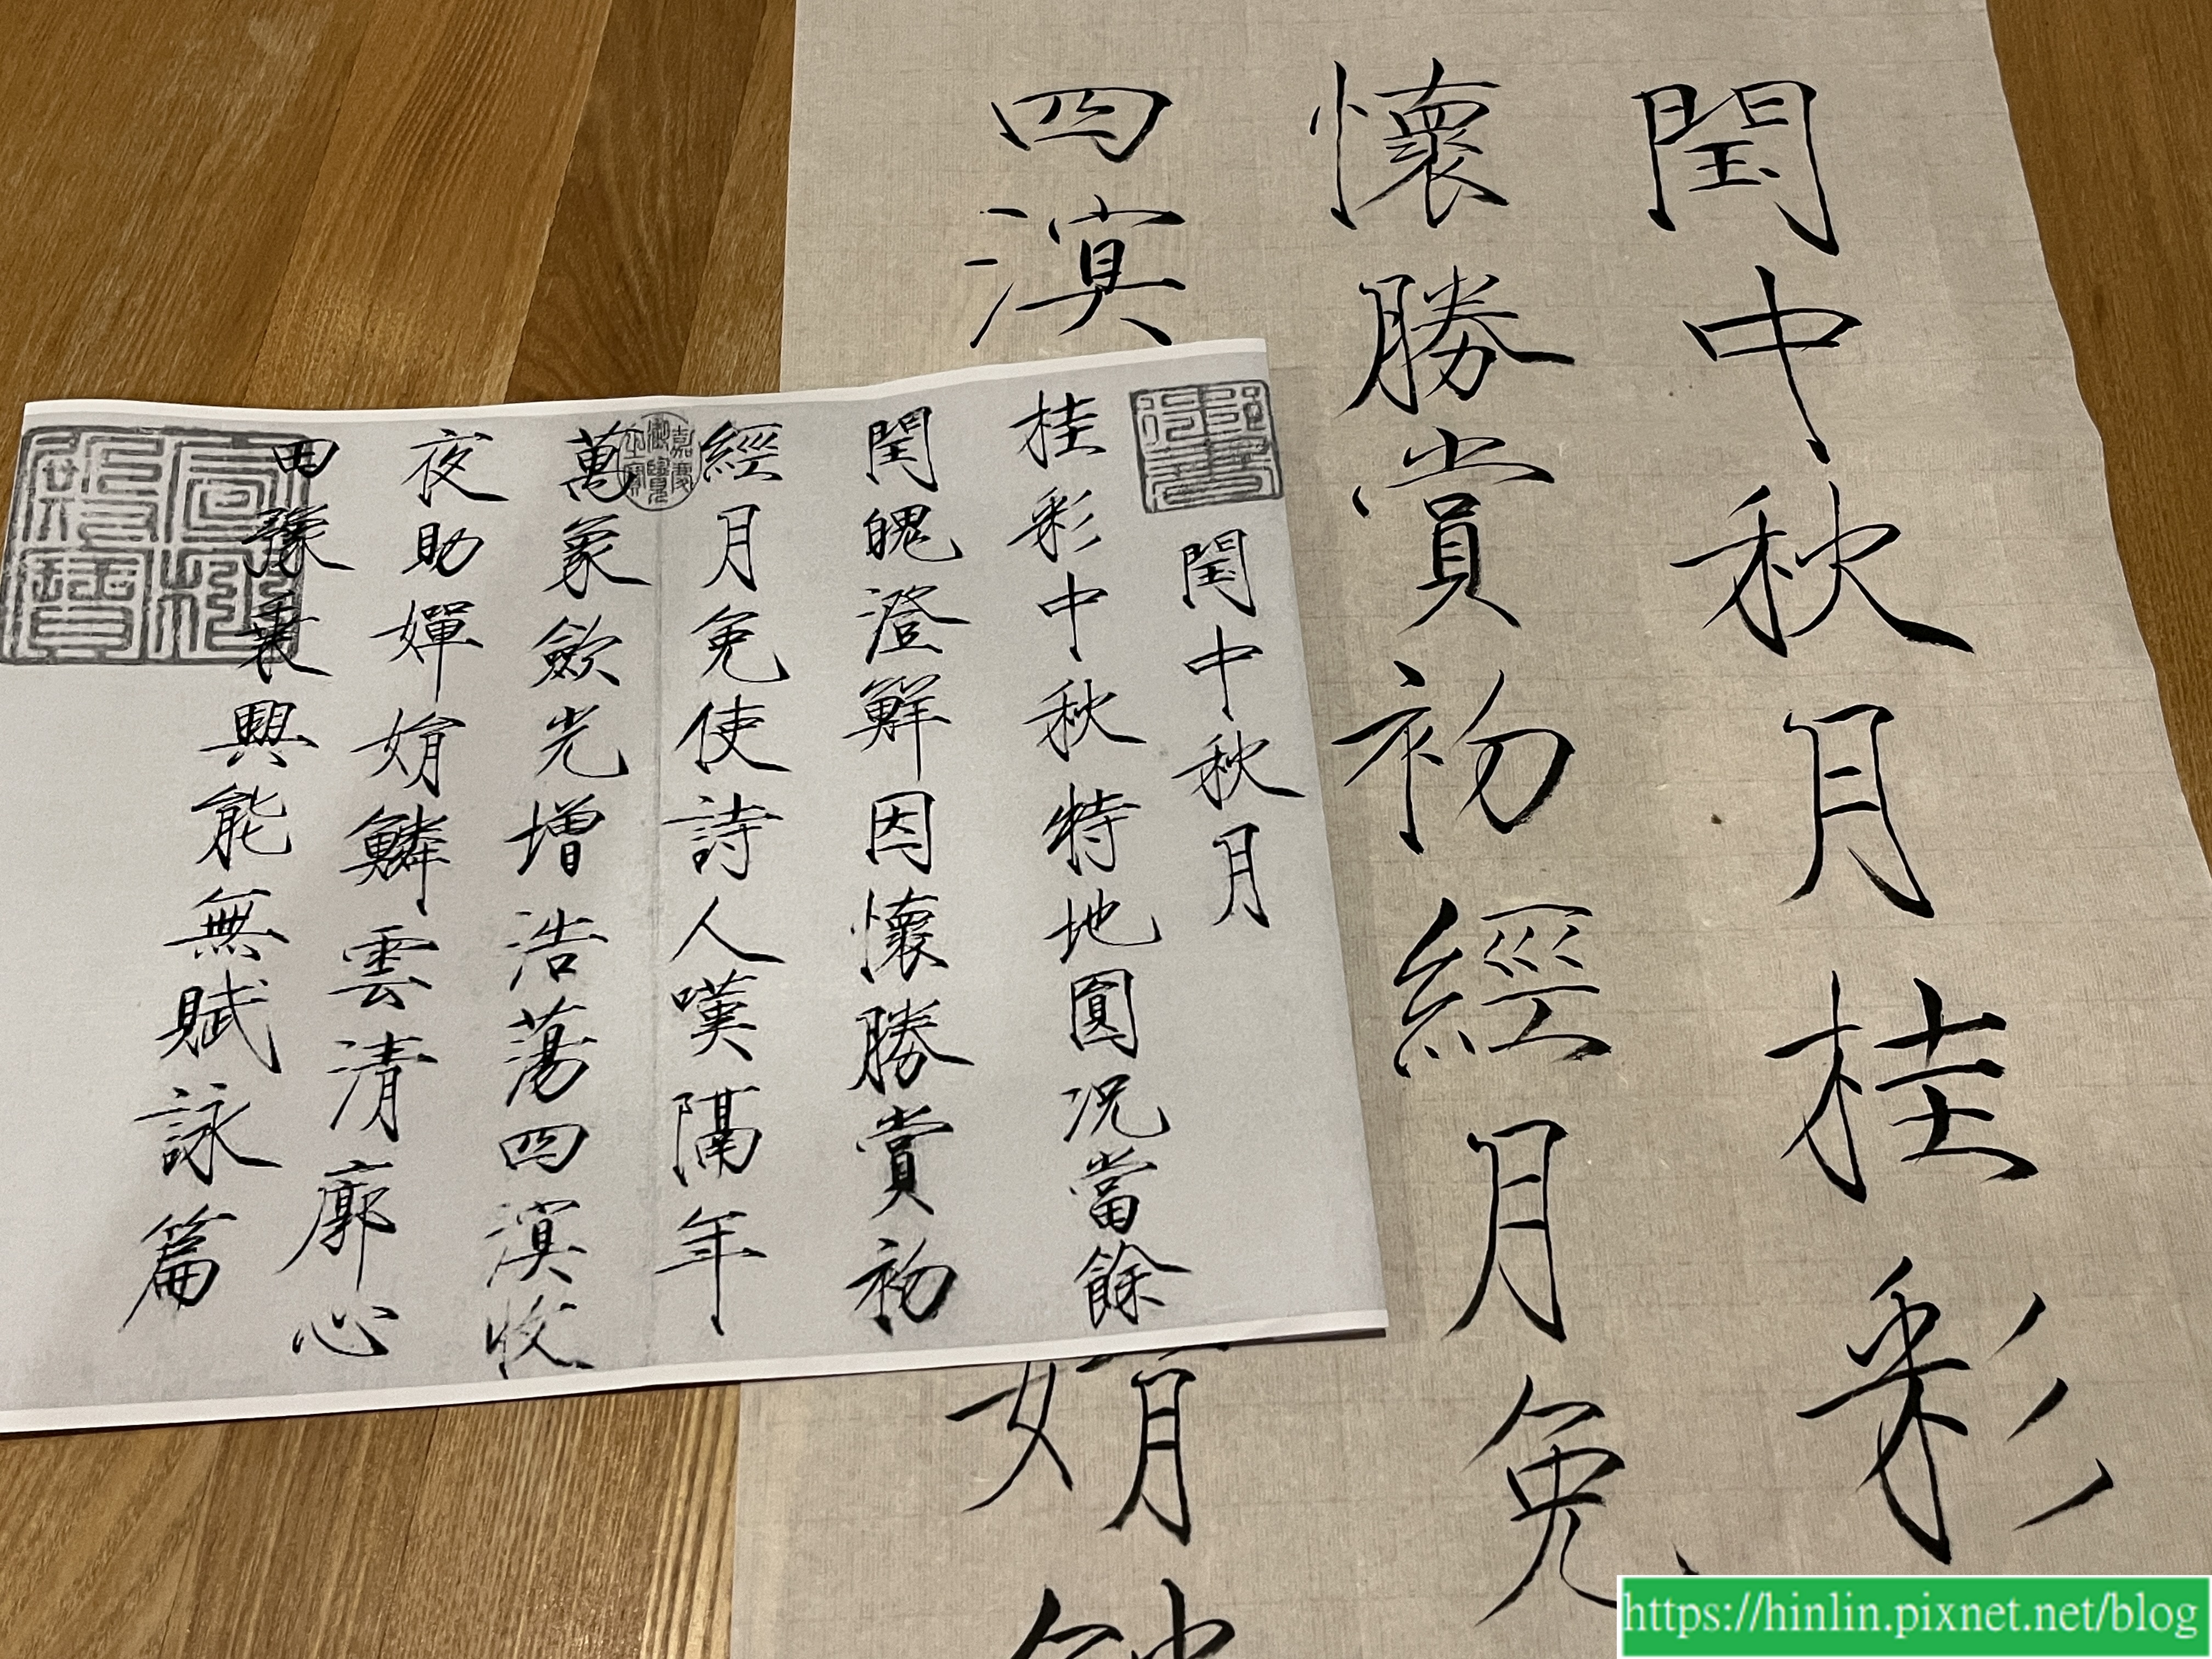 閏中秋月桂彩
懷勝賞初經月免
四溟
娟鱗
閏中秋月
桂彩中秋特地圓況當餘
閏魄澄鮮因懷勝賞初
經月免使詩人嘆隔年
萬象斂光增浩蕩四溟收
夜助嬋娟鱗雲清廓心
田豫乘興能無賦詠篇
嘉慶御覽之寶
宣統御覽之寶
https://hinlin.pixnet.net/blog